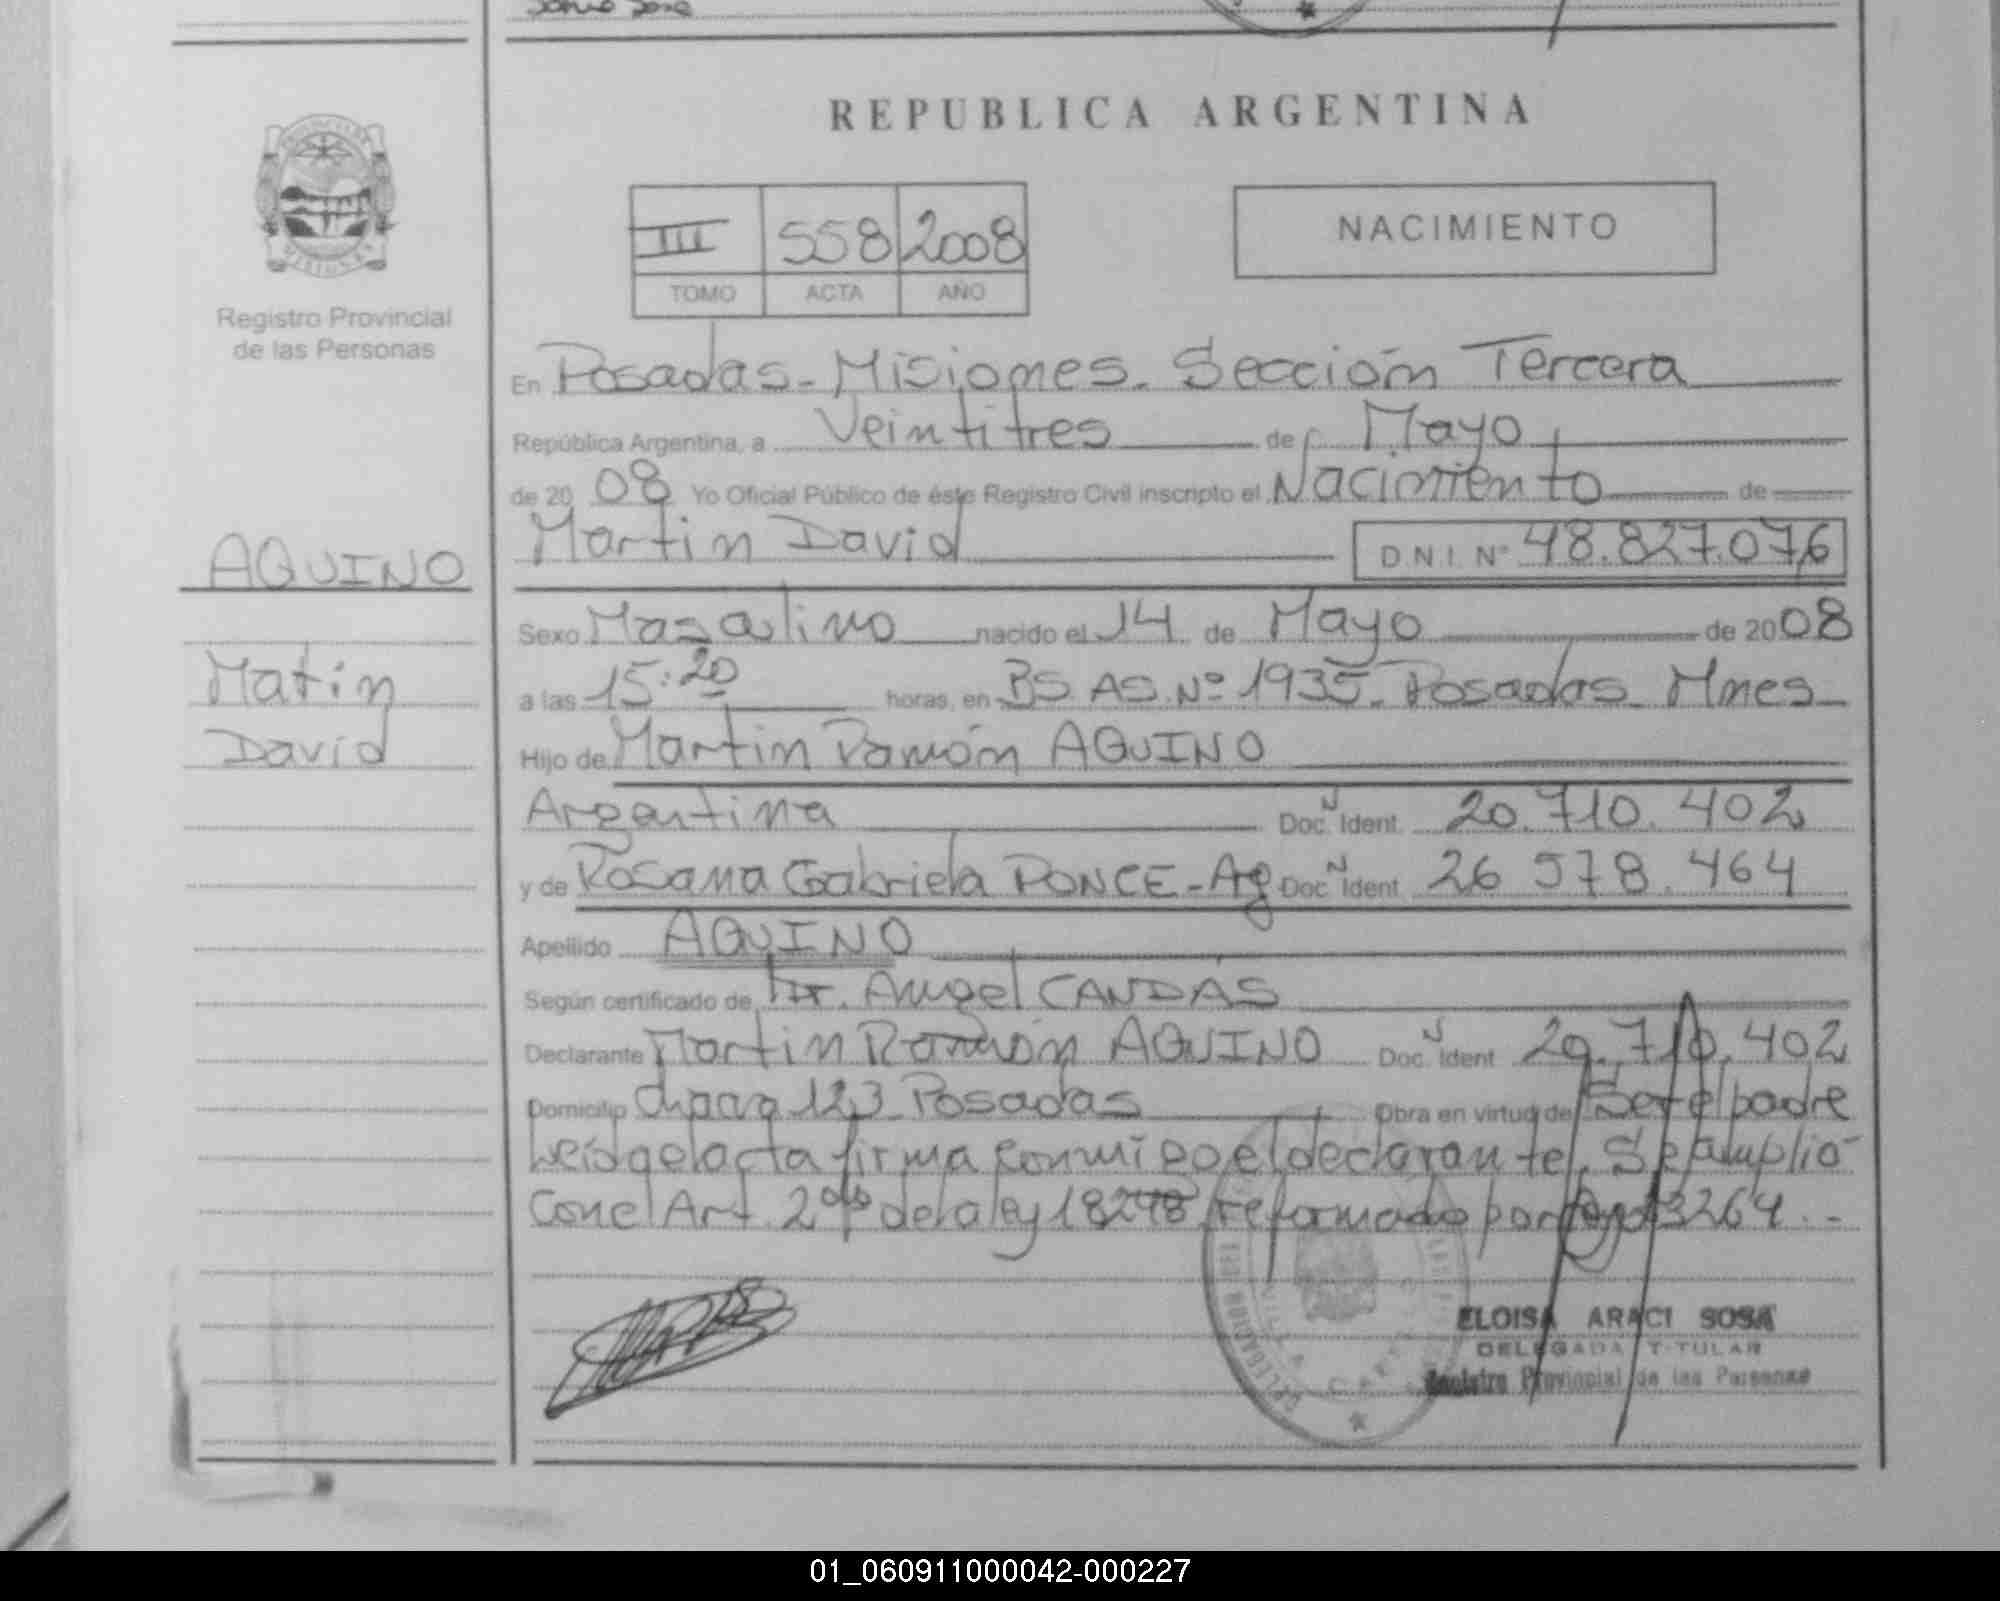 REPUBLICA ARGENTINA
III 558 2008
TOMO ACTA AÑO
NACIMIENTO
Registro Provincial
de las Personas
En Posadas - Misiones. Sección Tercera
República Argentina, a Veintitres de Mayo
de 20 08 Yo Oficial Público de éste Registro Civil inscripto el Nacimiento de
Martin David D.N.I. Nº 48.827.076
AQUINO
Matin
David
Sexo Masculino nacido el 14 de Mayo de 2008
a las 15:20 horas, en BS. AS. Nº 1935. Posadas Mnes
Hijo de Martin Ramón AQUINO
Argentina Doc. Ident. 20.710.402
y de Rosana Gabriela PONCE - Ag Doc. Ident. 26 578.464
Apellido AQUINO
Según certificado de Dr. Angel CANDAS
Declarante Martin Ramón AQUINO Doc. Ident 20.710.402
Domicilio 123 Posadas Obra en virtud de Ser el padre
Leida el acta firma conmigo el declarante. Se amplió
Con el Art. 2º de la ley 18248 reformado por 23264. -
ELOISA ARACI SOSA
DELEGADA TITULAR
Registro Provincial de las Personas
01_060911000042-000227